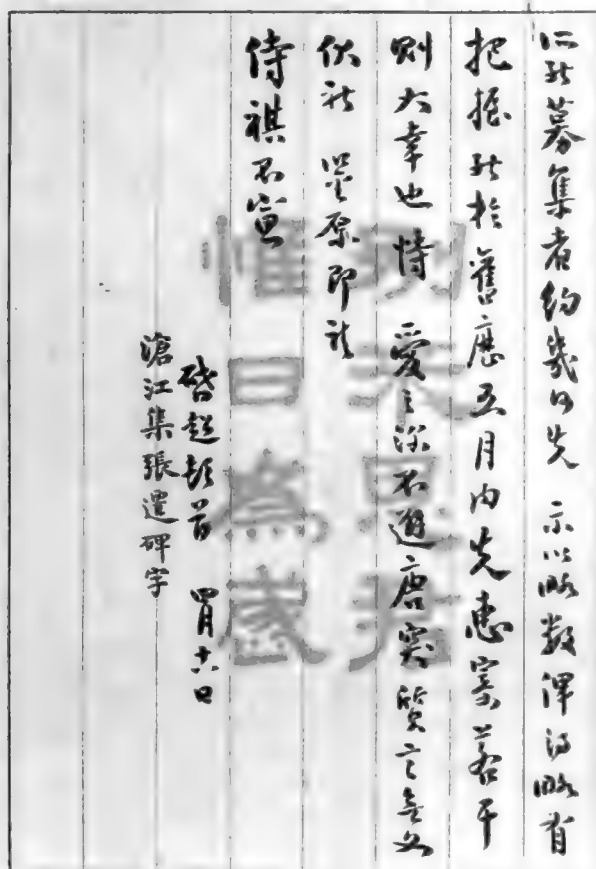 所能募集者約幾何先 示以略數俾得略有
把握能於舊曆五月內先惠寄若干
則大幸也恃 愛之深不避唐突質言無文
伏祈 鑒原即頌
侍祺不宣
啓超頓首 四月十六日
滄江集張遷碑字
惟日為歲